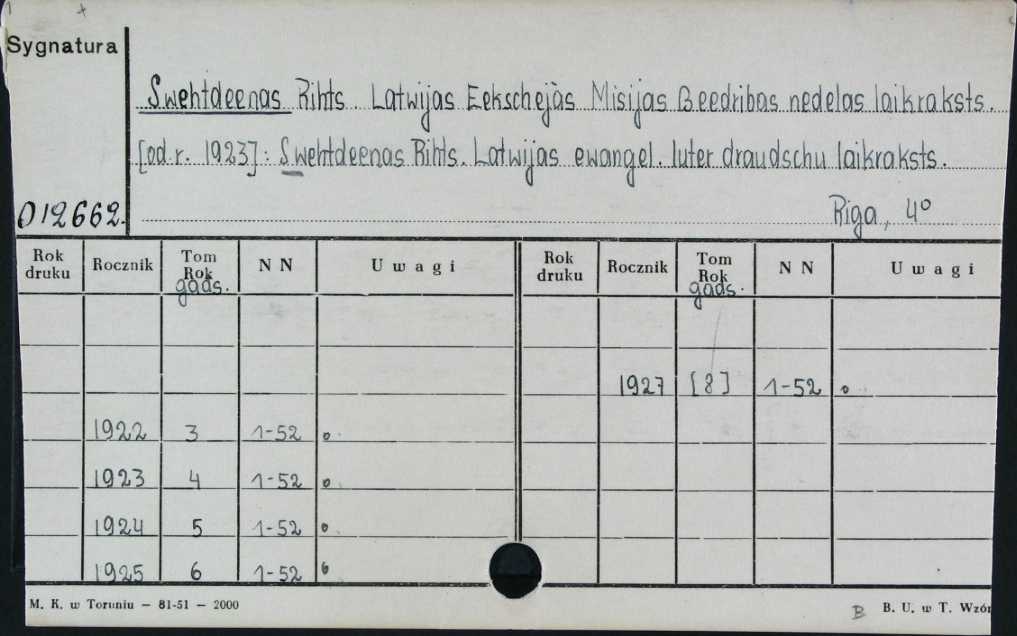 Sygnatura
Swehtdeenas Rihts. Latwijas Eekschejàs Misijas Beedribas nedelas laikraksts.
[od r. 1923]: Swehtdeenas Rihts. Latwijas ewangel. luter draudschu laikraksts.
012662.
Riga, 4°
Rok druku Rocznik Tom Rok gads. N N Uwagi Rok druku Rocznik Tom Rok gads. N N Uwagi
1927 [8] 1-52 o
1922 3 1-52 o
1923 4 1-52 o
1924 5 1-52 o
1925 6 1-52
M. K. w Toruniu — 81-51 — 2000
B B. U. w T. Wzór